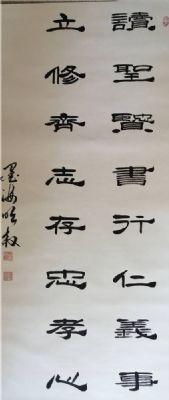 讀聖賢書行仁義事
立修齊志存忠孝心